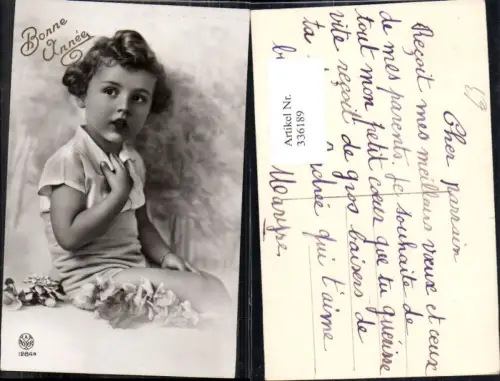 Bonne
Année
1284
Artikel Nr.
336189
Cher Parrain
Reçoit mes meilleurs vœux et ceux
de mes parents. Je souhaite de
tout mon petit cœur que tu guérisse
vite reçoit de gros baisers de
ta qui t'aime